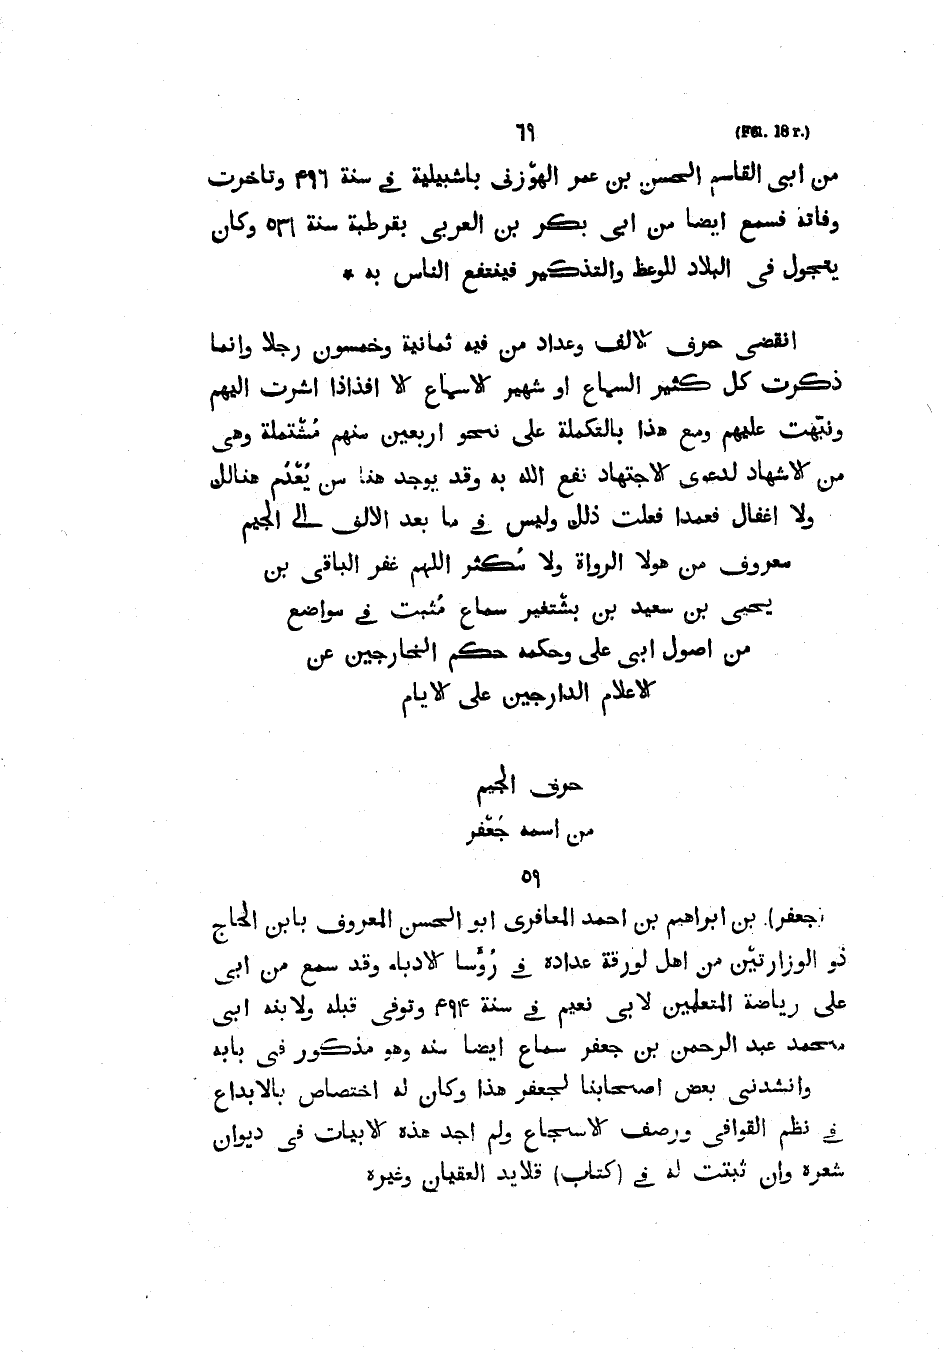 ٦٩ (Fol. 18 r.)
من ابى القاسم الحسن بن عمر الهوّزنى باشبيلية فى سنة ۴٩٦ وتاخرت
وفاته فسمع ايضا من ابى بكر بن العربى بقرطبة سنة ٥٣٦ وكان
يتجول فى البلاد للوعظ والتذكير فينتفع الناس به *
انقضى حرف الالف وعداد من فيه ثمانية وخمسون رجلا وانما
ذكرت كل كثير السماع او شهير الاسماع الا افذاذا اشرت اليهم
ونبّهت عليهم ومع هذا بالتكملة على نحو اربعين منهم مُشْتملة وهى
من الاشهاد لدعوى الاجتهاد نفع الله به وقد يوجد هنا من يُعْدَم هنالك
ولا اغفال فعمدا فعلت ذلك وليس فى ما بعد الالف الى الجيم
معروف من هولا الرواة ولا مُكثر اللهم غفر الباقى بن
يحيى بن سعيد بن بشْتغير سماع مُثبت فى مواضع
من اصول ابى على وحكمه حكم الخارجين عن
الاعلام الدارجين على الايام
حرف الجيم
من اسمه جَعْفر
٥٩
(جعفر) بن ابراهيم بن احمد المعافرى ابو الحسن المعروف بابن الحاج
ذو الوزارتيْن من اهل لورقة عداده فى رُؤَسا الادباء وقد سمع من ابى
على رياضة المتعلمين لابى نعيم فى سنة ۴٩۴ وتوفى قبله ولابنه ابى
محمد عبد الرحمن بن جعفر سماع ايضا منه وهو مذكور فى بابه
وانشدنى بعض اصحابنا لجعفر هذا وكان له اختصاص بالابداع
فى نظم القوافى ورصف الاسجاع ولم اجد هذه الابيات فى ديوان
شعره وان ثبتت له فى (كتاب) قلايد العقيان وغيره